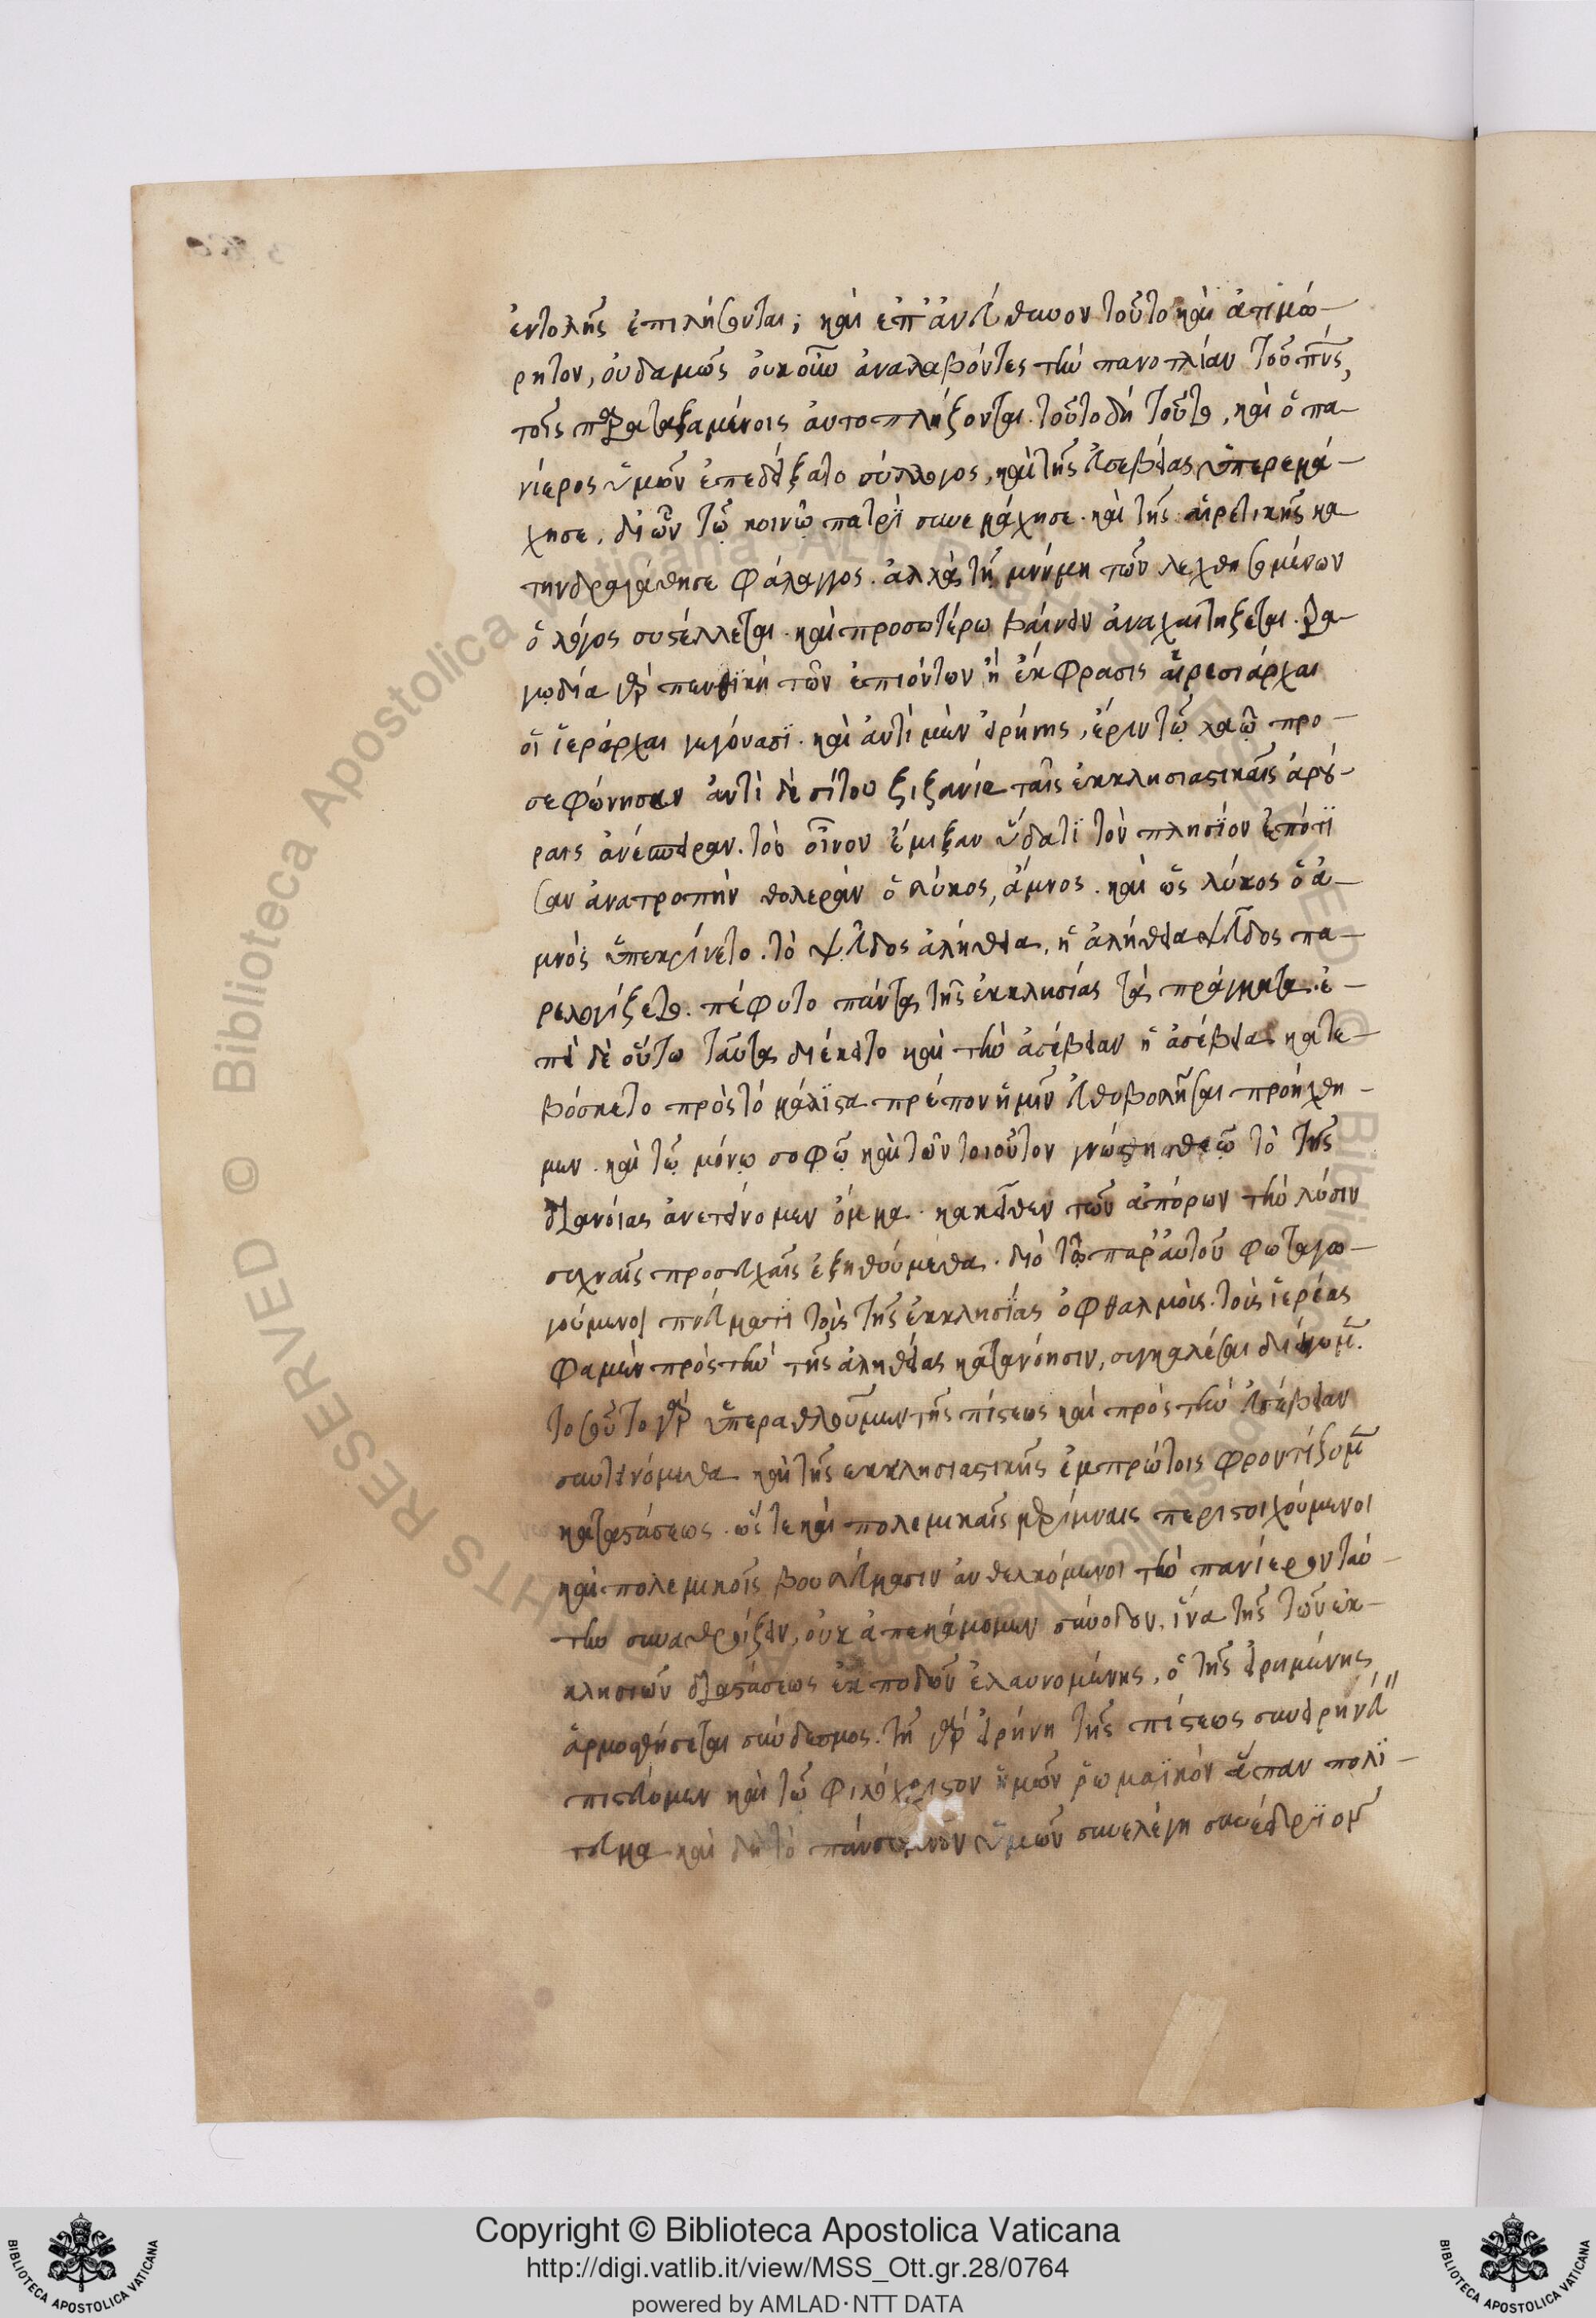 ἐντολῆς ἐπιλήσονται; καὶ ἐπ' ἀνεύθυνον τοῦτο καὶ ἀτιμώ-
ρητον, οὐδαμῶς οὐκοῦν ἀναλαβόντες τὴν πανοπλίαν τοῦ πνς,
τοῖς παραταξαμένοις ἀντοπλήξονται. τοῦτο δὴ τοῦτο, καὶ ὁ πα-
νίερος ὑμῶν ἐπεδείξατο σύλλογος, καὶ τῆς εὐσεβείας ὑπερεμά-
χησε, δι ὧν τῷ κοινῷ πατρὶ συνεμάχησε. καὶ τῆς αἱρετικῆς κα
τηνδραγάθησε φάλαγγος. ἀλλὰ τῇ μνήμῃ τῶν λεχθησομένων
ὁ λόγος συστέλλεται. καὶ προσωτέρω βαίνειν ἀναχαιτίζεται. τρα
γωδία γὰρ πενθικὴ τῶν ἐπιόντων ἡ ἔκφρασις αἱρεσιάρχαι
οἱ ἱεράρχαι γεγόνασι. καὶ ἀντὶ μὲν εἰρήνης, ἔριν τῷ λαῷ προ-
σεφώνησαν ἀντὶ δὲ σίτου ζιζανία ταῖς ἐκκλησιαστικαῖς ἀρού-
ραις ἀνέσπειραν. τὸν οἶνον ἔμιξαν ὕδατι τὸν πλησίον ἐπότι
σαν ἀνατροπὴν θολεράν ὁ λύκος, ἀμνος. καὶ ὡς λύκος ὁ ἀ-
μνὸς ὑπεκρίνετο. τὸ ψεῦδος ἀλήθεια, ἡ ἀλήθεια ψεῦδος πα-
ρελογίζετο. πέφυτο πάντα τῆς ἐκκλησίας τὰ πράγματα. ἐ-
πεὶ δὲ οὕτω ταῦτα διέκειτο καὶ τὴν ἀσέβειαν ἡ ἀσέβεια κατε-
βόσκετο πρὸς τὸ μάλιστα πρέπον ἡμῖν εὐθυβολῆσαι προήχθη-
μεν. καὶ τῷ μόνῳ σοφῷ καὶ τῶν τοιούτον γνώστῃ θεῷ τὸ τῆς
διανοίας ἀνετείνομεν ὄμμα. κακεῖθεν τῶν ἀπόρων τὴν λύσιν
συχναῖς προσευχαῖς ἐξῃτούμεθα. διὸ τῷ παρ' αὐτοῦ φωταγω-
γούμενοι πνεύματι τοὺς τῆς ἐκκλησίας ὀφθαλμοὺς. τοὺς ἱερέας
φαμὲν πρὸς τὴν τῆς ἀληθείας κατανόησιν, συγκαλέσαι διέγνωμεν.
τοσοῦτο γὰρ ὑπεραθλοῦμεν τῆς πίστεως καὶ πρὸς τὴν εὐσέβειαν
συντεινόμεθα καὶ τῆς εκκλησιαστικῆς ἐμπρώτοις φροντίζομεν
καταστάσεως. ὥστε καὶ πολεμικαῖς μερίμναις περιστοιχούμενοι
καὶ πολεμικοῖς βουλεύμασιν ἀνθελκόμενοι τὴν πανίερον ταύ-
την συναθροίζειν, οὐκ ἀπεκάμομεν σύνοδον, ἵνα τῆς τῶν ἐκ-
κλησιῶν διαστάσεως ἐκποδῶν ἐλαυνομένης, ὁ τῆς εἰρημένης
ἁρμοσθήσεται σύνδεσμος. τῇ γὰρ εἰρήνη τῆς πίστεως συνειρηνεύ"
πιστεύομεν καὶ τῷ φιλόχριστον ἡμῶν ῥωμαϊκὸν ἅπαν πολί-
τευμα καὶ δὴ τὸ πάνσεμνον ὑμῶν συνελέγη συνέδριον
Copyright © Biblioteca Apostolica Vaticana
http://digi.vatlib.it/view/MSS_Ott.gr.28/0764
powered by AMLAD·NTT DATA